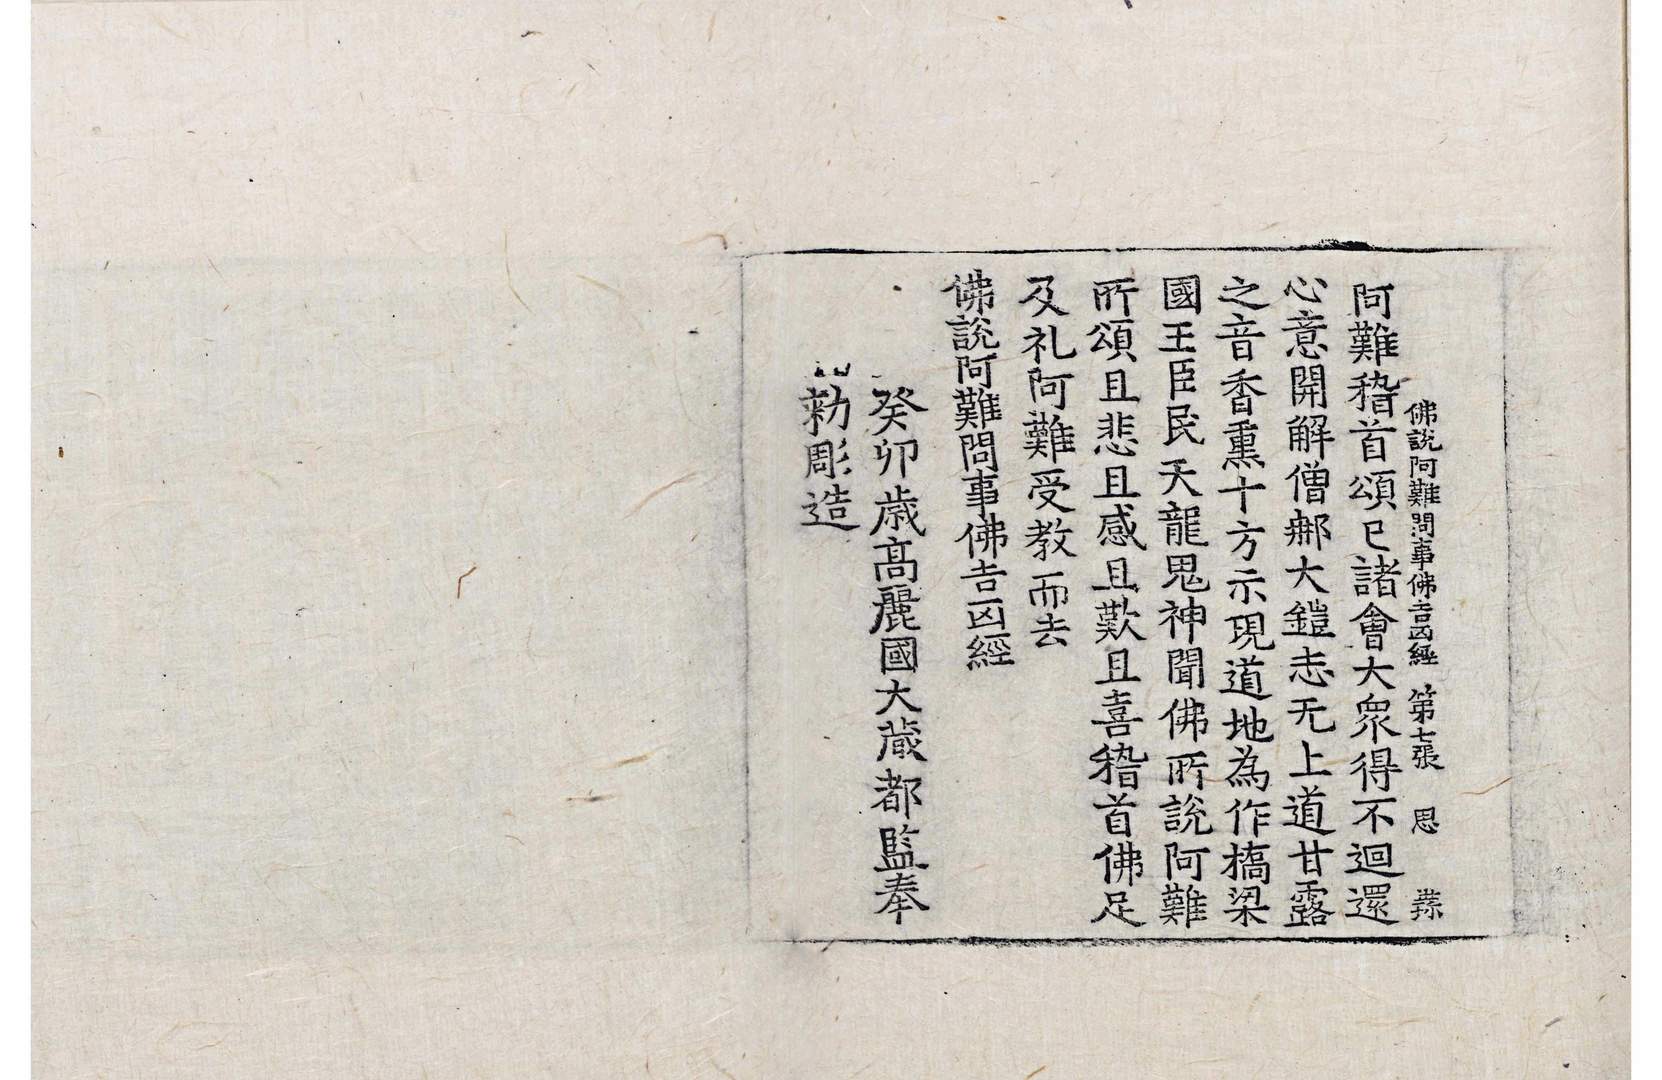 佛說阿難問事佛吉凶經 第七張 思
阿難稽首頌已諸會大衆得不迴還
心意開解僧那大鎧志无上道甘露
之音香熏十方示現道地為作橋梁
國王臣民天龍鬼神聞佛所說阿難
所頌且悲且感且歎且喜稽首佛足
及礼阿難受教而去
佛說阿難問事佛吉凶經
癸卯歲高麗國大藏都監奉
勅彫造